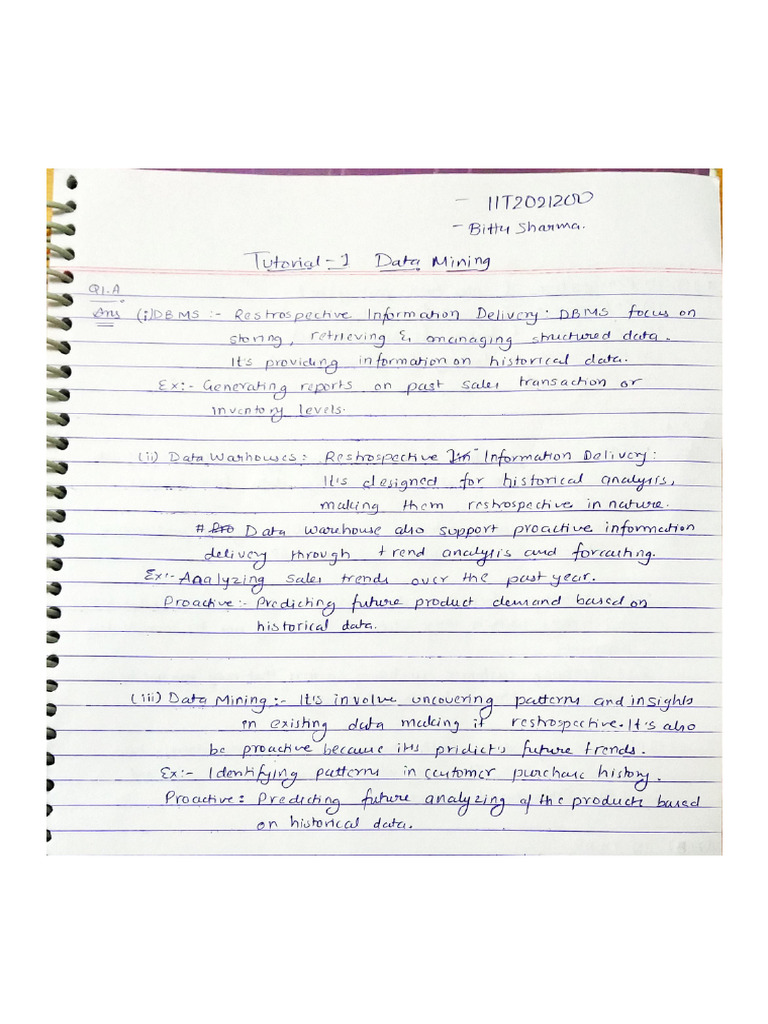 - IIT2021200
- Bittu Sharma.
Tutorial-1 Data Mining
Q1.A
Ans (i) DBMS :- Restrospective Information Delivery: DBMS focus on
storing, retrieving & managing structured data.
It's providing information on historical data.
Ex:- Generating reports on past sales transaction or
inventory levels.
(ii) Data Warhouses: Restrospective Information Delivery:
It's designed for historical analysis,
making them restrospective in nature.
# Data warehouse also support proactive information
delivery through trend analysis and forcasting.
Ex:- Analyzing sales trends over the past year.
Proactive:- Predicting future product demand based on
historical data.
(iii) Data Mining:- It's involve uncovering patterns and insights
in existing data making it restrospective. It's also
be proactive because its pridict's future trends.
Ex:- Identifying patterns in customer purchase history.
Proactive: Predicting future analyzing of the products based
on historical data.